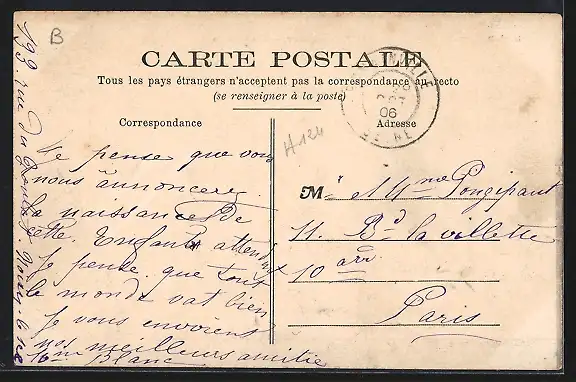 B
CARTE POSTALE
Tous les pays étrangers n'acceptent pas la correspondance au recto
(se renseigner à la poste)
Correspondance
Adresse
06
H124
Je pense que vous
nous annoncerez
la naissance de
cette Enfant attendu
Je pense que tout
le monde vat bien
Je vous envoient
nos meilleurs amitie
Blanc
193 rue du
Mr et Mme Pongipaut
11. Bd la vollette
10 arr
Paris